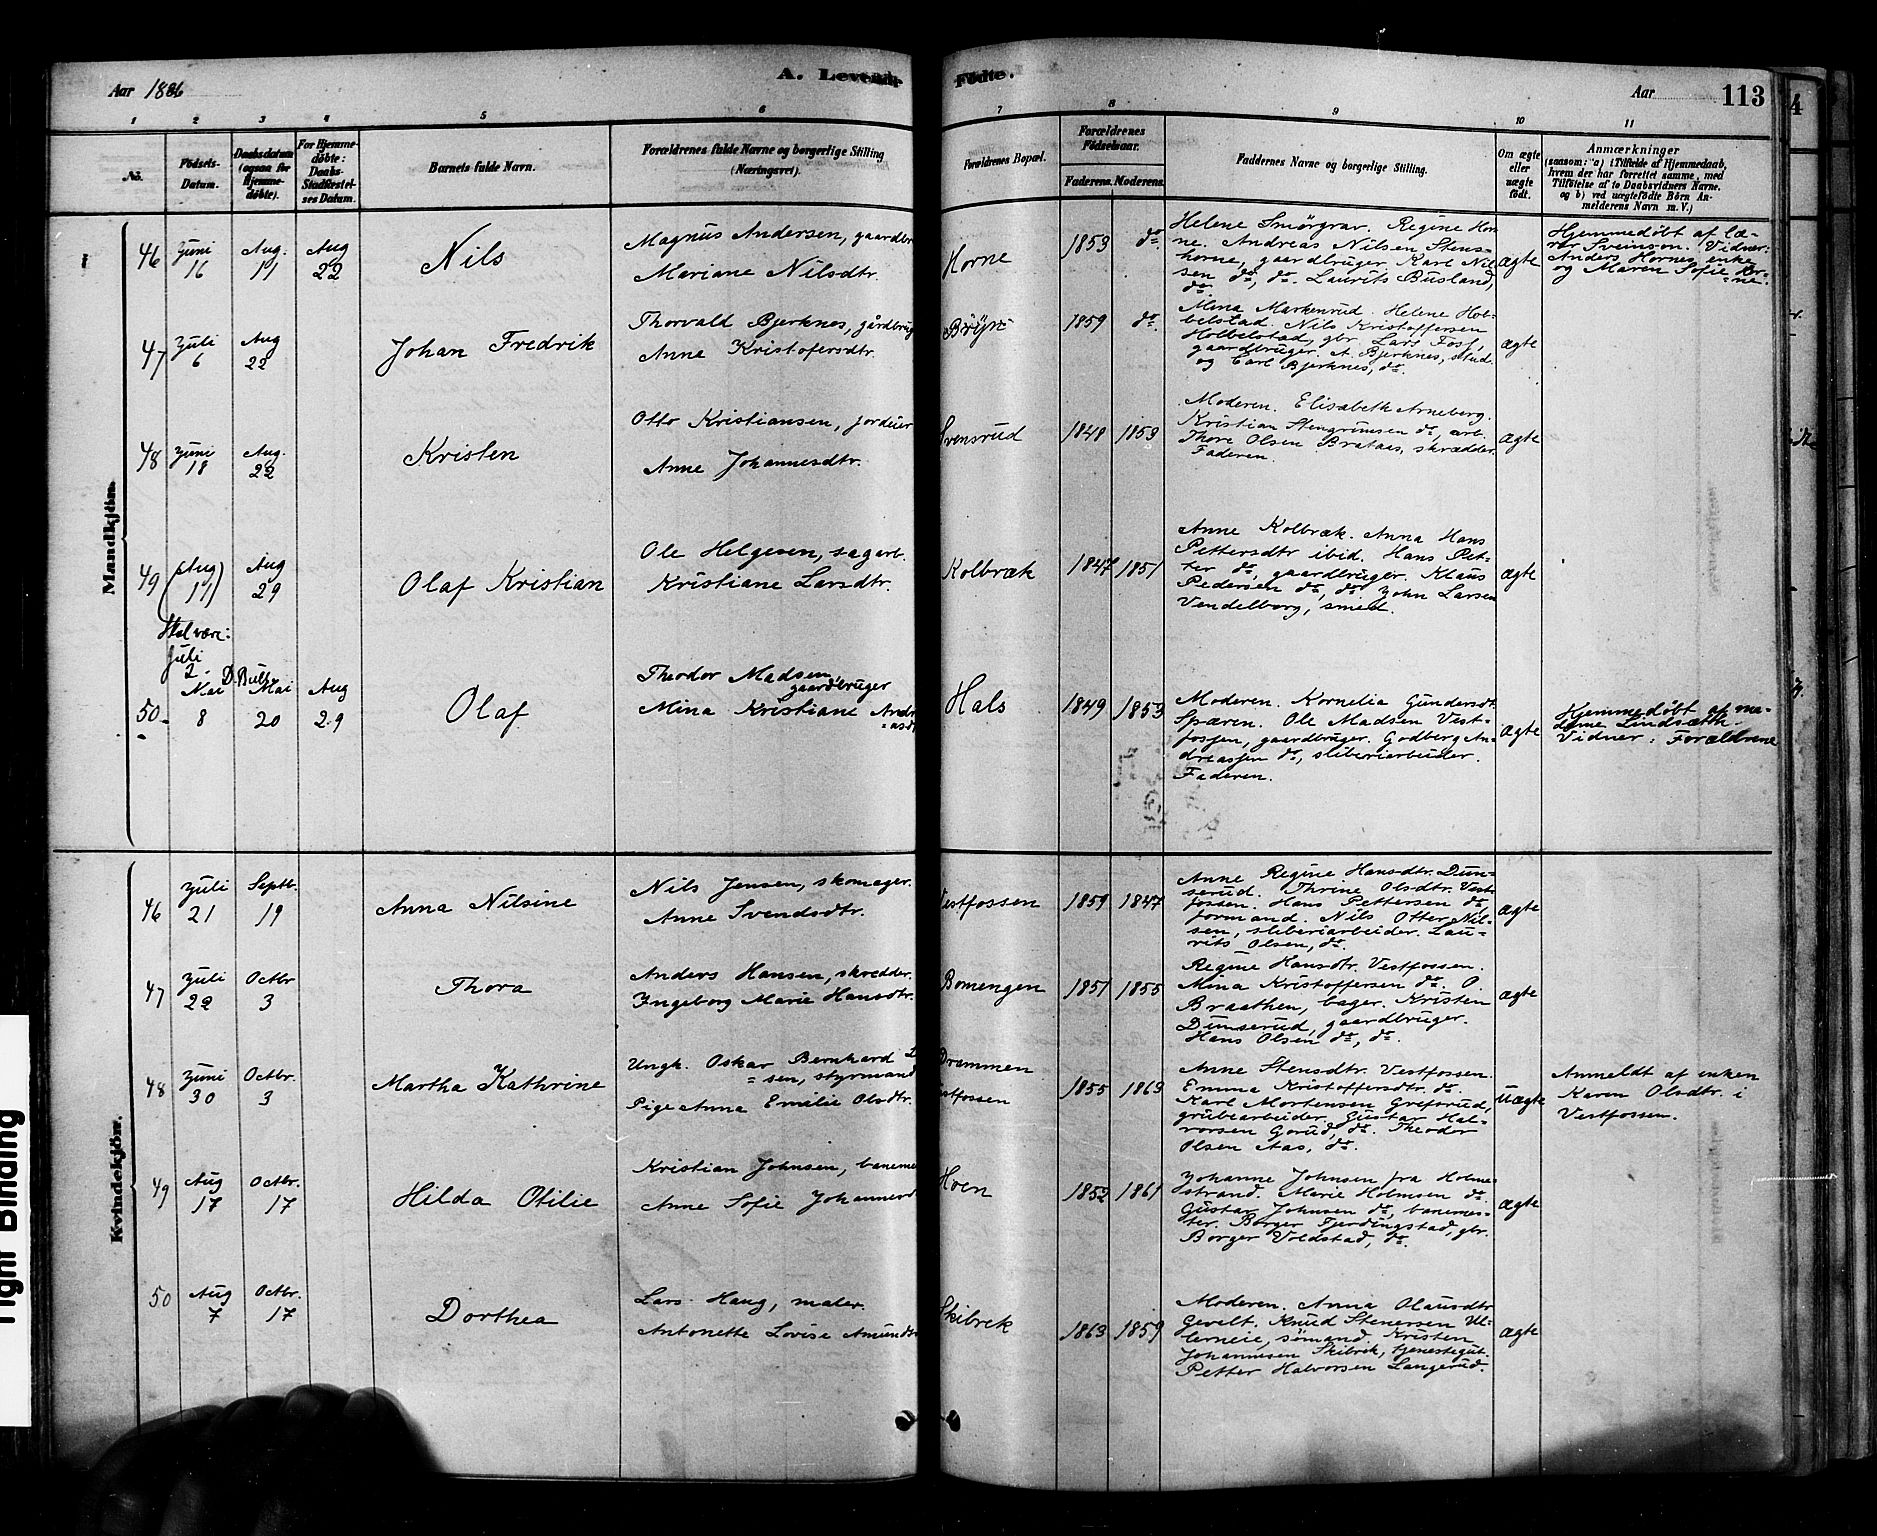 Aar 1886
A. Levende Fødte.
Aar 113
1 2 3 4 5 6 7 8 9 10 11
No.
Fødsels-Datum.
Daabsdatum (ogsaa for Hjemme-døbte).
For Hjemme-døbte: Daabs-Stadfæstel-ses Datum.
Barnets fulde Navn.
Forældrenes fulde Navne og borgerlige Stilling (Næringsvei).
Forældrenes Bopæl.
Forældrenes Fødselsaar.
Faderens. Moderens.
Faddernes Navne og borgerlige Stilling.
Om ægte eller uægte født.
Anmærkninger
(saasom: a) i Tilfælde af Hjemmedaab,
hvem der har forrettet samme, med
Tilføielse af to Daabsvidners Navne,
og b) ved uægtefødte Børn An-
melderens Navn m. V.)
Mandkjøn.
46 Juni 16 Aug. 11 Aug 22 Nils
Magnus Andersen, gaardbr
Mariane Nilsdtr.
Horne 1853 do
Helene Smörgrav. Regine Hor-
ne. Andreas Nilsen Stens-
horne, gaardbruger. Karl Nil-
sen do, do. Laurits Busland,
do.
ægte
Hjemmedøbt af læ-
rer Svenson. Vidner:
Anders Hornes enke
og Maren Sofie Hor-
=ne.
47 Juli 6 Aug 22 Johan Fredrik
Thorvald Bjerknes, gårdbrug
Anna Kristofersdtr.
1859 do.
Mina Markenrud. Helene Hob-
belstad. Nils Kristoffersen
Hobbelstad, gbr. Lars Foss,
gaardbruger. A. Bjerknes, stud.
og Carl Bjerknes, do.
ægte
48 Juni 18 Aug. 22 Kristen
Otto Kristiansen, jordeier
Anne Johannesdtr.
Svensrud 1848 1853
Moderen. Elisabeth Arneberg.
Kristian Stengrimsen do, arb.
Thore Olsen Brataas, skrædder.
Faderen.
ægte
49 (Aug 17) Aug 29 Olaf Kristian
Ole Helgesen, sagarb.
Kristiane Larsdtr.
Kolbræk 1847 1851
Anne Kolbræk. Anna Hans
Pettersdtr ibid. Hans Pet-
ter do, gaardbruger. Klaus
Pedersen do, do. John Larsen
Vendelborg, smed.
ægte
Skal være:
Juli
2. D. Bull
50 Mai 8 Mai 20 Aug 29 Olaf
Theodor Madsen,
gaardbruger
Mina Kristiane Andr
=asd
Hals 1849 1853
Moderen. Kornelia Gundersdt
Spæren. Ole Madsen Vest-
fossen, gaardbruger. Godberg An-
dreassen do, sliberiarbeider.
Faderen.
ægte
Hjemmedøbt af ma-
dame Lindsæth.
Vidner: Forældrene
Kvindekjøn.
46 Juli 21 Septb. 19 Anna Nilsine
Nils Jensen, skomager.
Anne Svendsdtr.
Vestfossen 1859 1847
Anne Regine Hansdtr. Dun-
serud. Thrine Olsdtr. Vest-
fossen. Hans Pettersen do,
formand. Nils Otter Nil-
sen, sliberiarbeider. Lau-
rits Olsen, do.
ægte
47 Juli 22 Octbr 3 Thora
Anders Hansen, skredder.
Ingeborg Marie Hansdtr.
Bomengen 1851 1855
Regine Hansdtr. Vestfossen.
Mina Kristoffersen do. O.
Braathen, bager. Kristen
Dunserud, gaardbruger.
Hans Olsen do, do.
ægte
48 Juni 30 Octbr. 3 Martha Kathrine
Ungk. Oskar Bernhard
=sen, styrmand
Pige Anna Emilie Olsdtr.
Drammen
estfossen
1855 1863
Anne Stensdtr. Vestfossen.
Emma Kristoffersdtr. do.
Karl Mortensen Grefsrud,
grubearbeider. Gustav Hal-
vorsen Gorud, do. Theodor
Olsen Aas, do.
uægte
Anmeldt af enken
Karen Olsdtr. i
Vestfossen.
49 Aug 17 Octbr. 17 Hilda Otilie
Kristian Johnsen, baneme
Anne Sofie Johannesd
Hoen 1852 1861
Johanne Johnsen fra Holme-
strand. Marie Holmsen do.
Gustav Johnsen do, banemes-
ter. Borger Fjerdingstad, gbr.
Borger Voldstad, do.
ægte
50 Aug 7 Octbr. 17 Dorthea
Lars Haug, maler.
Antonette Lovise Amundt
Skibrek 1863 1859
Moderen. Anna Olausdtr
Gevelt. Knud Stenersen Ul-
lerneie, sømand. Kristen
Johannesen Skibrek, tjenestegut.
Petter Halvorsen Langerud.
ægte
Tight Binding